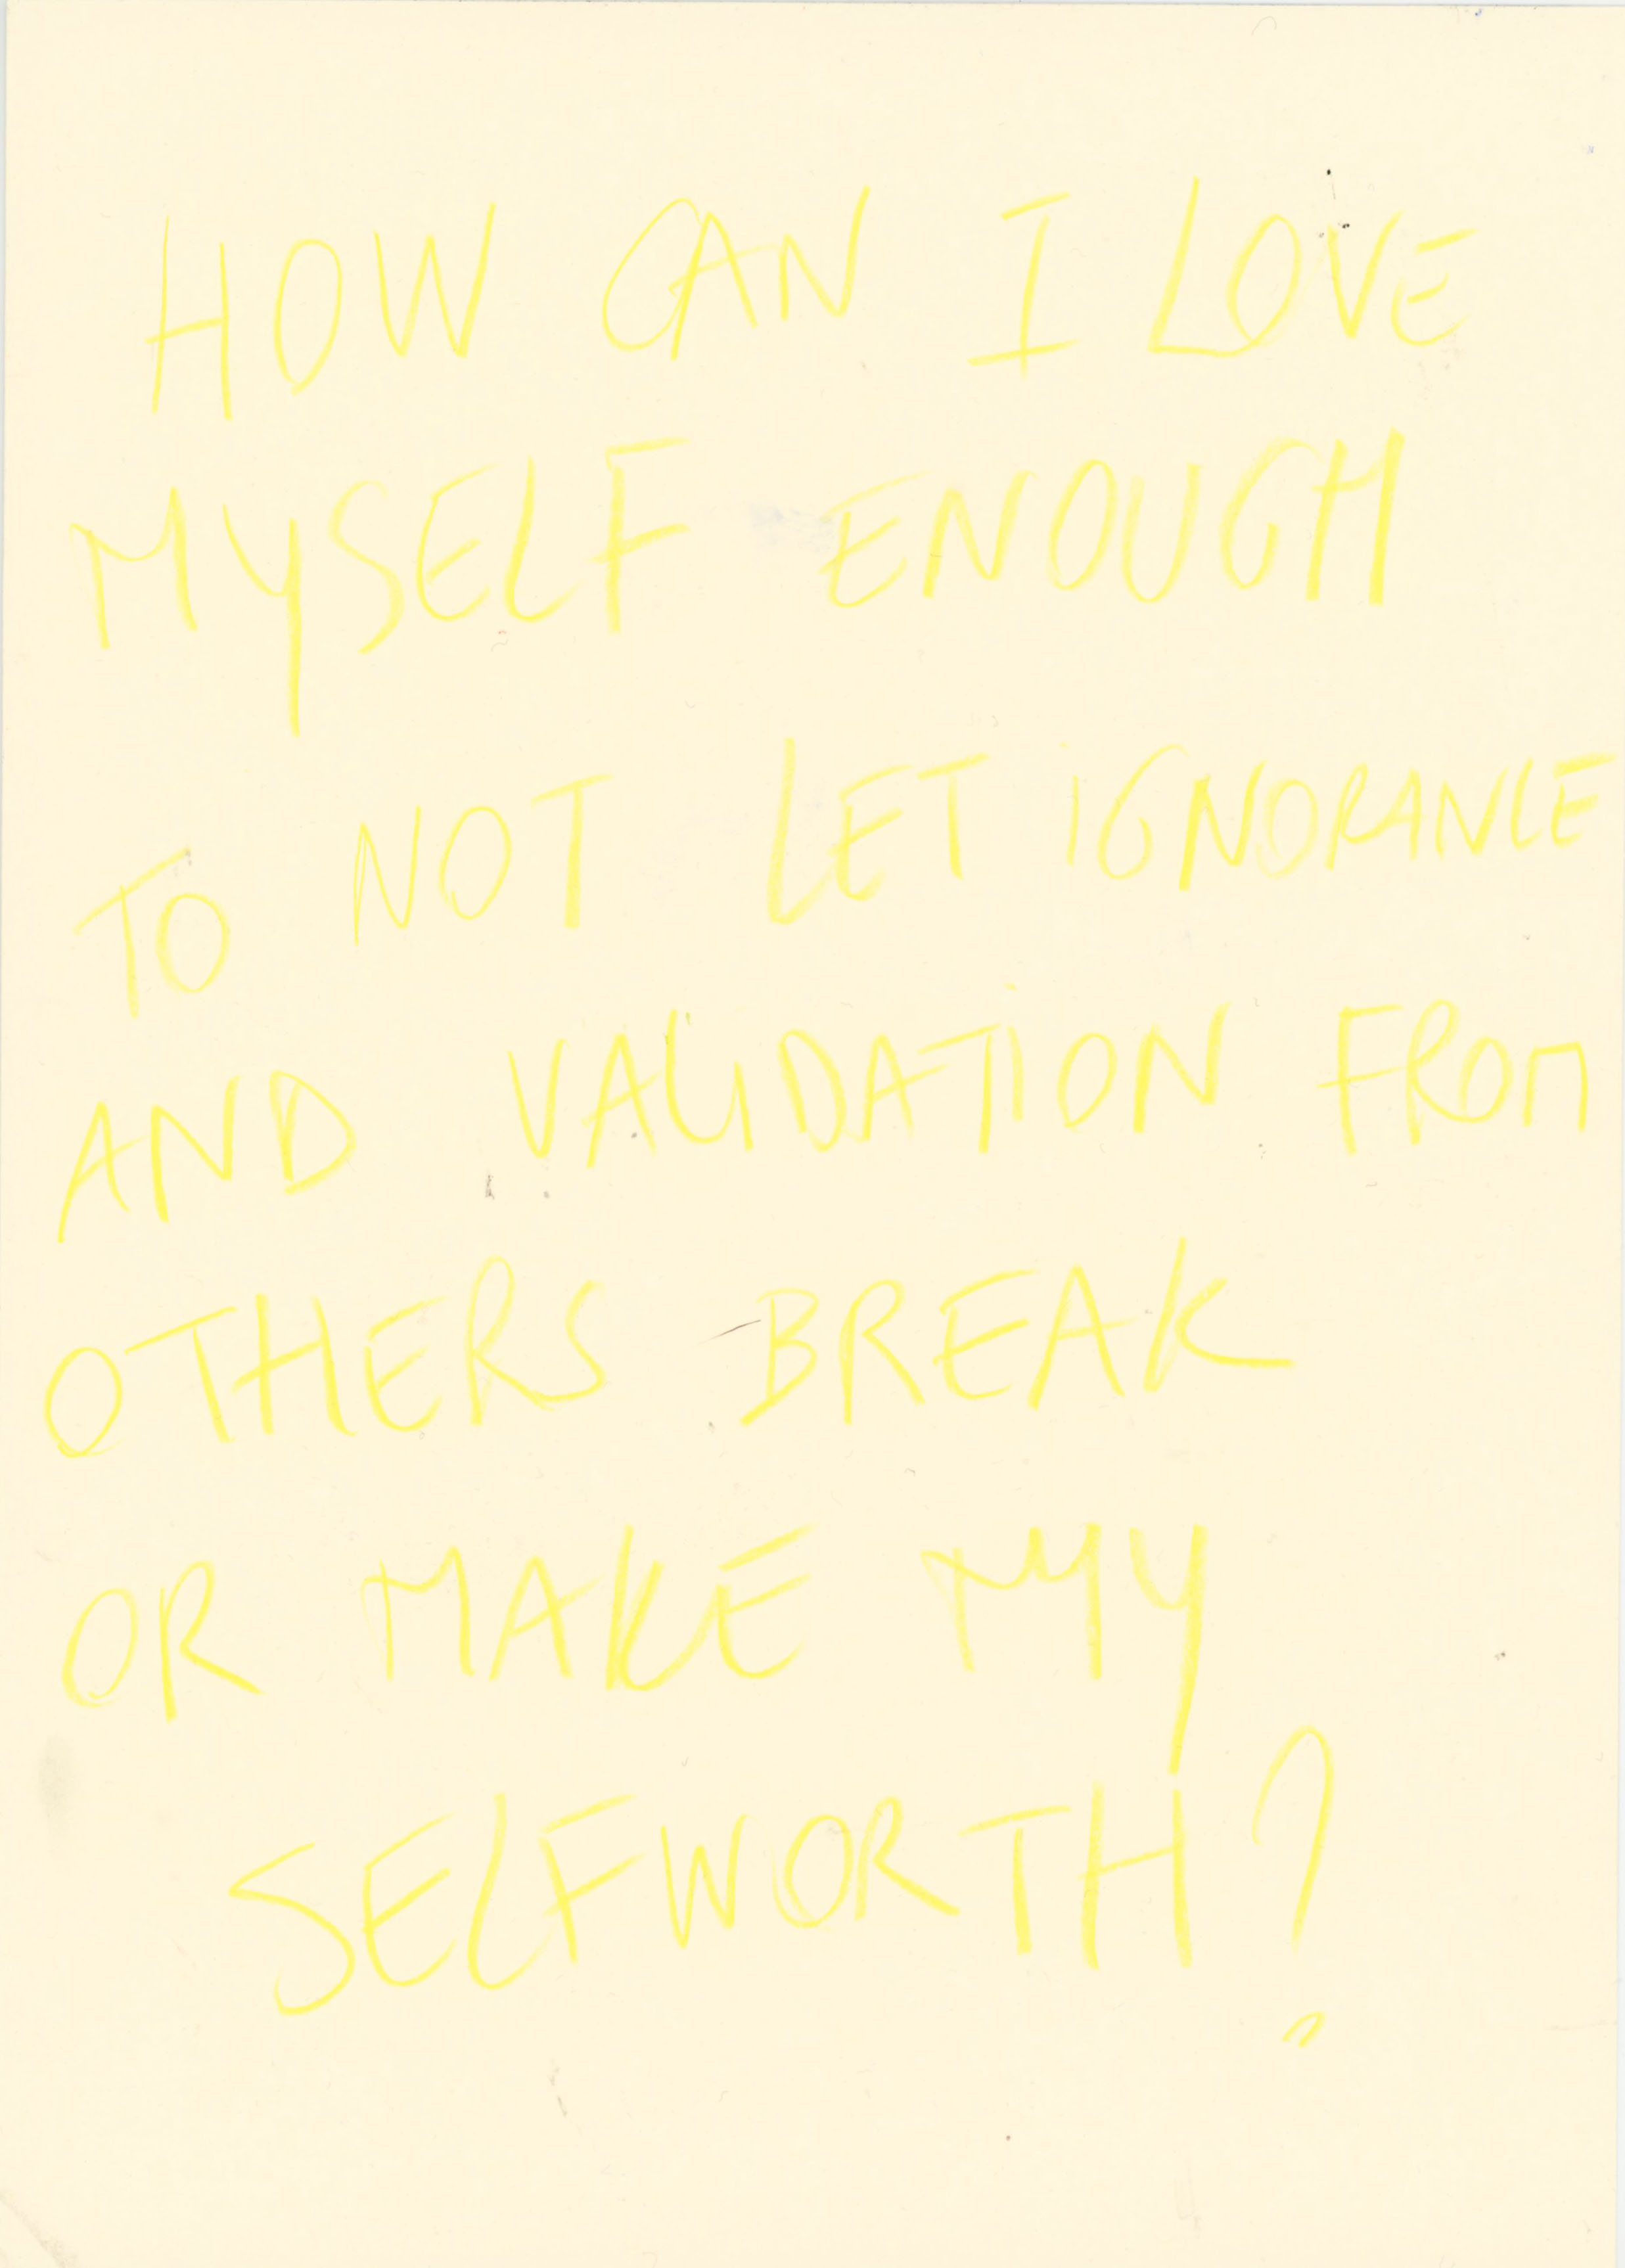 HOW CAN I LOVE
MYSELF ENOUGH
TO NOT LET IGNORANCE
AND VALIDATION FROM
OTHERS BREAK
OR MAKE MY
SELFWORTH?